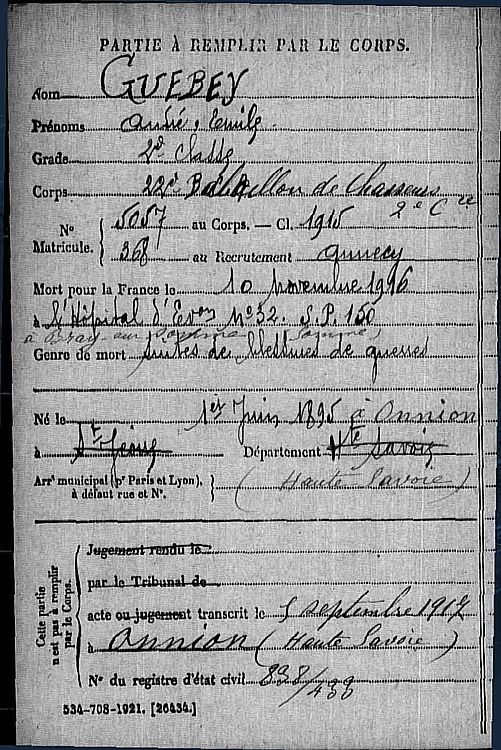 PARTIE À REMPLIR PAR LE CORPS.
Nom GUEBEY
Prénoms André, Emile
Grade 2e Classe
Corps 22e Bataillon de Chasseurs
2e Cie
N° Matricule. 5057 au Corps. — Cl. 1915
368 au Recrutement Annecy
Mort pour la France le 10 novembre 1916
à l'Hôpital d'Evon N° 32. S.P. 150
à sur Somme Somme
Genre de mort suites de blessures de guerre
Né le 1er Juin 1895 à Onnion
à St Jeoire Département Hte Savoie
Arrt municipal (pr Paris et Lyon), à défaut rue et N°. (Haute Savoie)
Cette partie n'est pas à remplir par le Corps.
Jugement rendu le
par le Tribunal de
acte ou jugement transcrit le 5 septembre 1917
à Onnion (Haute Savoie)
N° du registre d'état civil 838/433
534-708-1921. [26434.]